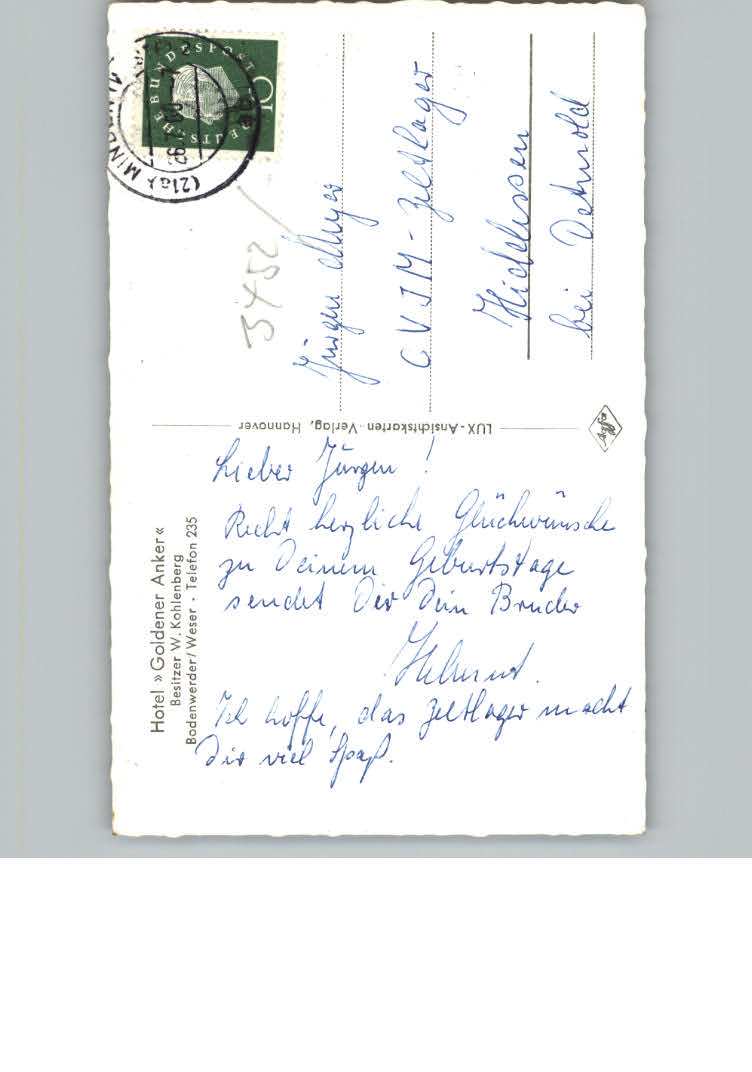 DEUTSCHE BUNDESPOST
10
(21a) MINDEN
3452
Jürgen
CVJM - Zeltlager
Hiddesen
bei Detmold
LUX-Ansichtskarten-Verlag, Hannover
Agfa
Hotel »Goldener Anker«
Besitzer W. Kohlenberg
Bodenwerder/Weser · Telefon 235
Lieber Jürgen!
Recht herzliche Glückwünsche
zu Deinem Geburtstage
sendet Dir Dein Bruder
Helmut.
Ich hoffe, das Zeltlager macht
Dir viel Spaß.